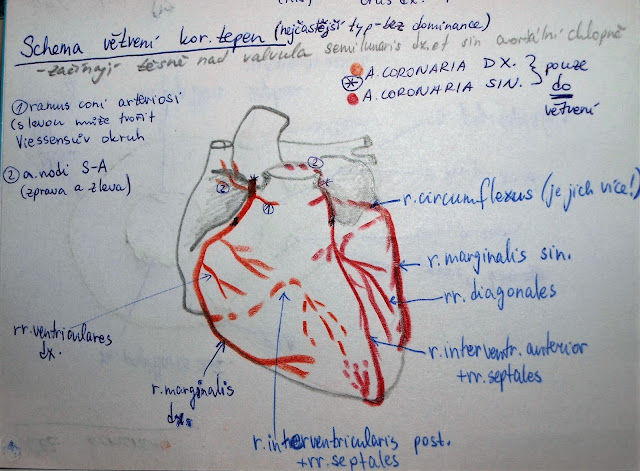 Schema větvení kor. tepen (nejčastější typ - bez dominance)
- začínají těsně nad valvula semilunaris dx. et sin aortální chlopně
A. CORONARIA DX.
A. CORONARIA SIN.
pouze
do
větvení
① ramus coni arteriosi
(s levou může tvořit
Viessensův okruh
② a. nodi S-A
(zprava a zleva)
②
②
①
r. circumflexus (je jich více!)
r. marginalis sin.
rr. diagonales
r. interventr. anterior
+ rr. septales
rr. ventriculares
dx.
r. marginalis
dx.
r. interventricularis post.
+ rr. septales